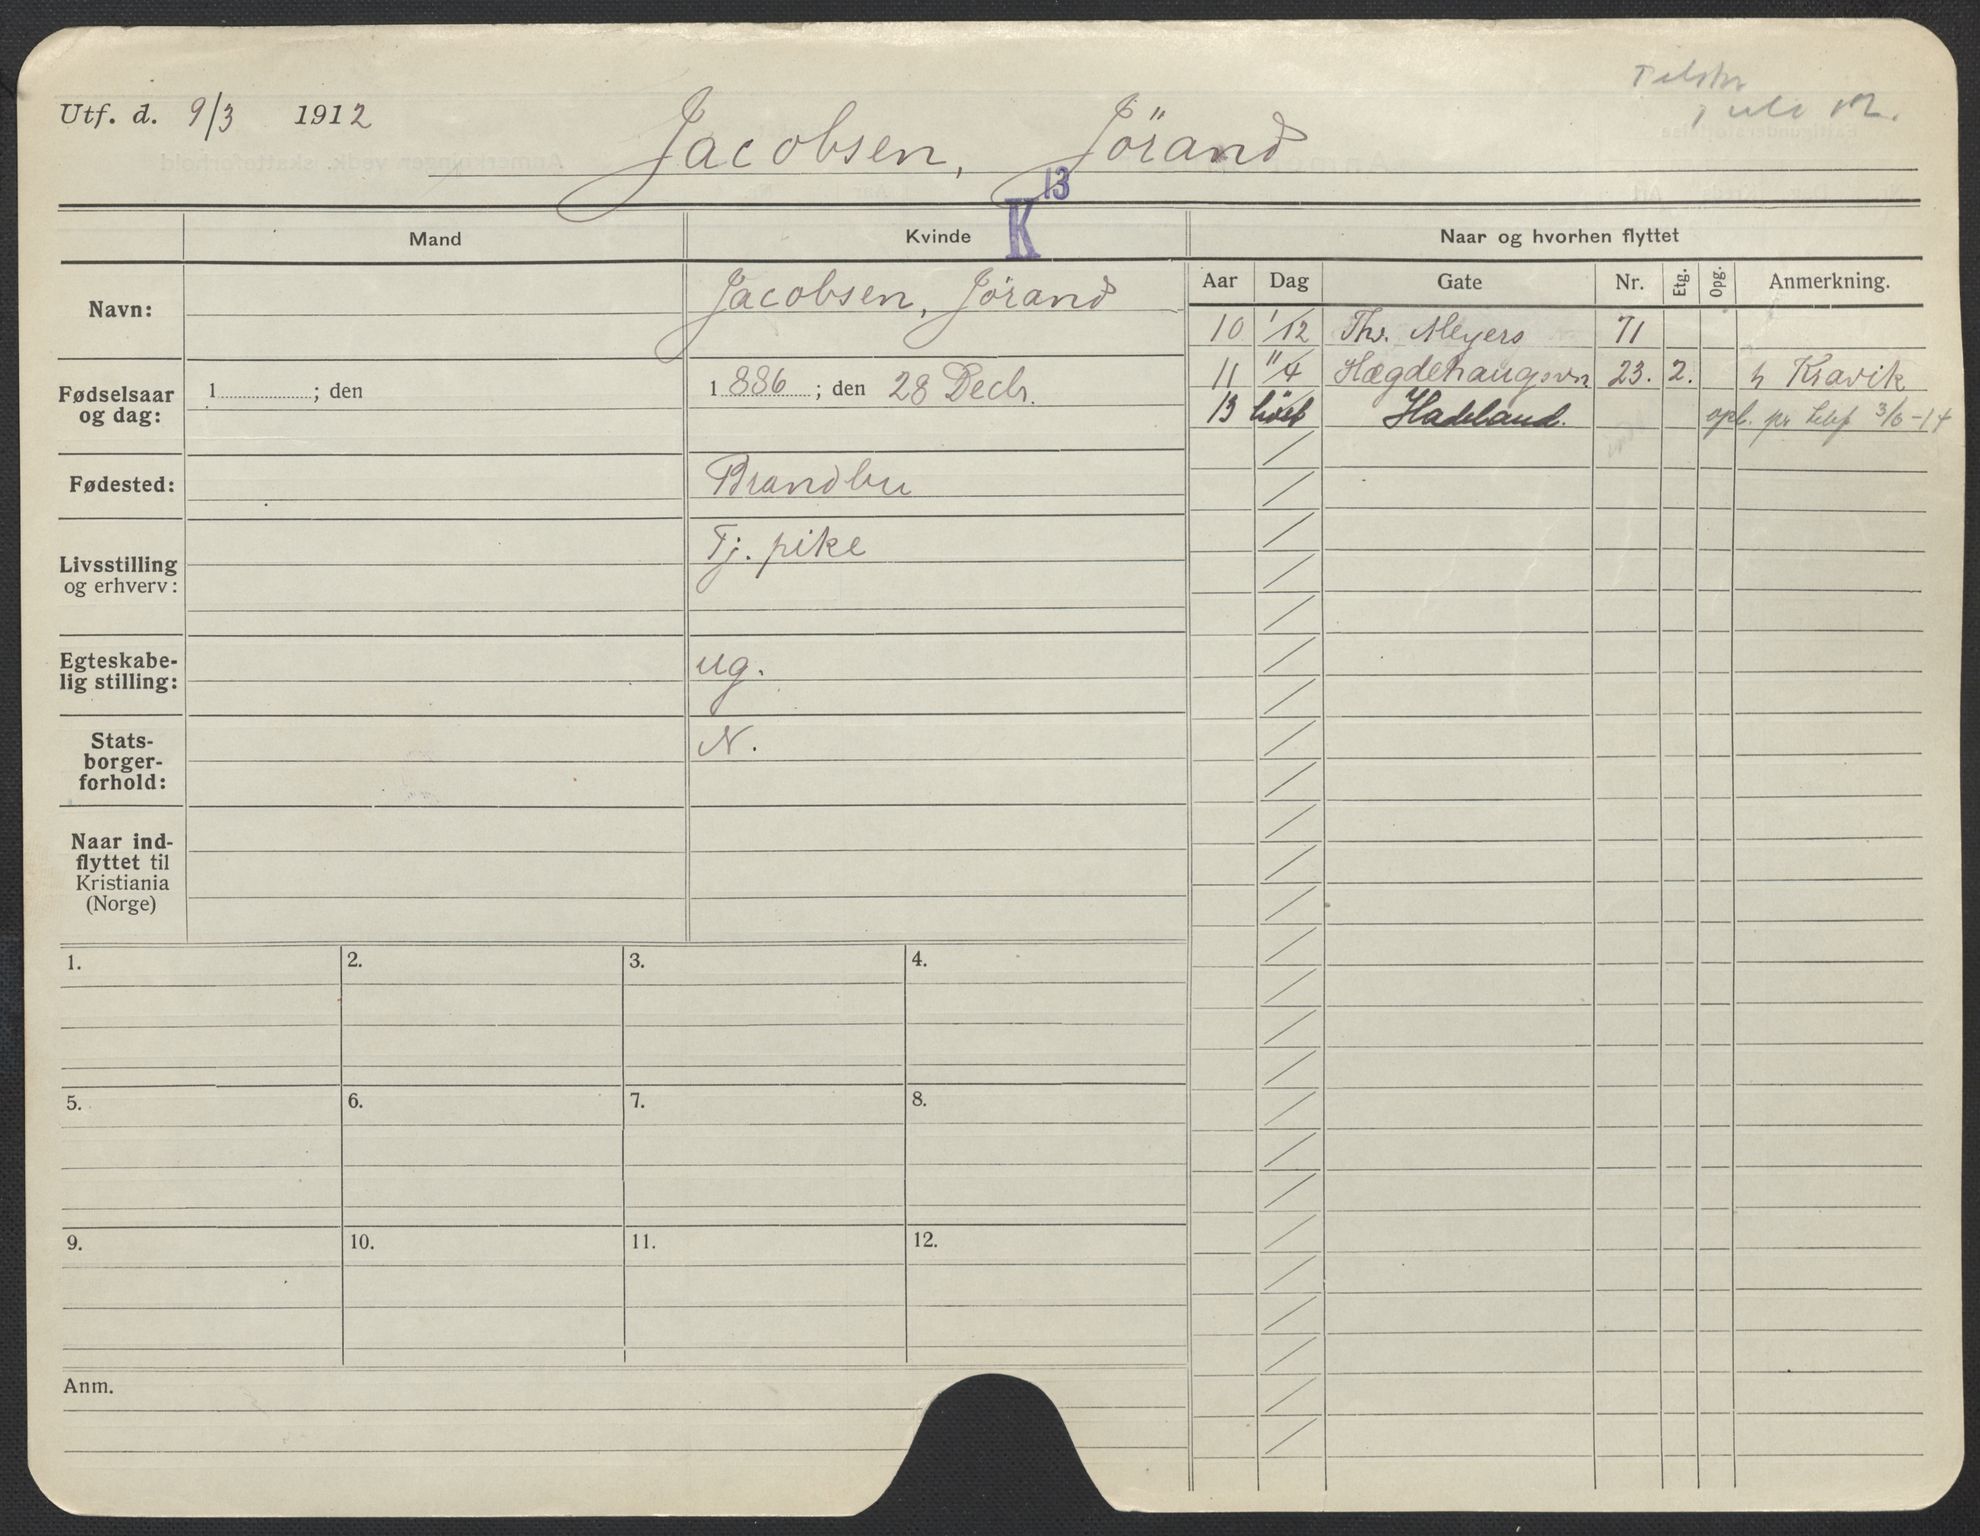 Utf. d. 9/3 1912
Jacobsen, Jörand
Juli 12.
K 13
Mand
Kvinde
Naar og hvorhen flyttet
Aar Dag Gate Nr. Etg. Opg. Anmerkning.
Navn:
Jacobsen, Jörand
Fødselsaar
og dag:
1 ; den
1 886 ; den 28 Decbr.
Fødested:
Brandbu
Livsstilling
og erhverv:
Tj. pike
Egteskabe-
lig stilling:
ug.
Stats-
borger-
forhold:
N.
Naar ind-
flyttet til
Kristiania
(Norge)
10 1/12 Thv. Meyers 71
11 11/4 Hægdehaugsvn 23. 2. h Kravik
13 höst Hadeland. opl. pr 3/6-14
1. 2. 3. 4.
5. 6. 7. 8.
9. 10. 11. 12.
Anm.